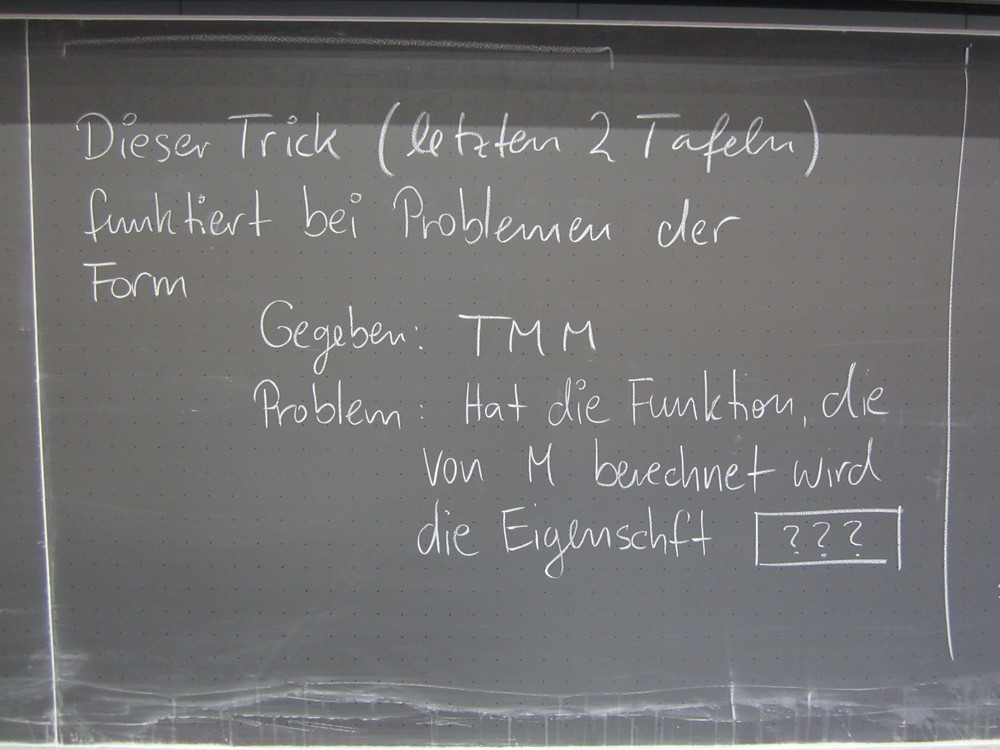 Dieser Trick (letzten 2 Tafeln)
funktiert bei Problemen der
Form
Gegeben: TM M
Problem: Hat die Funktion, die
von M berechnet wird
die Eigenschft ???